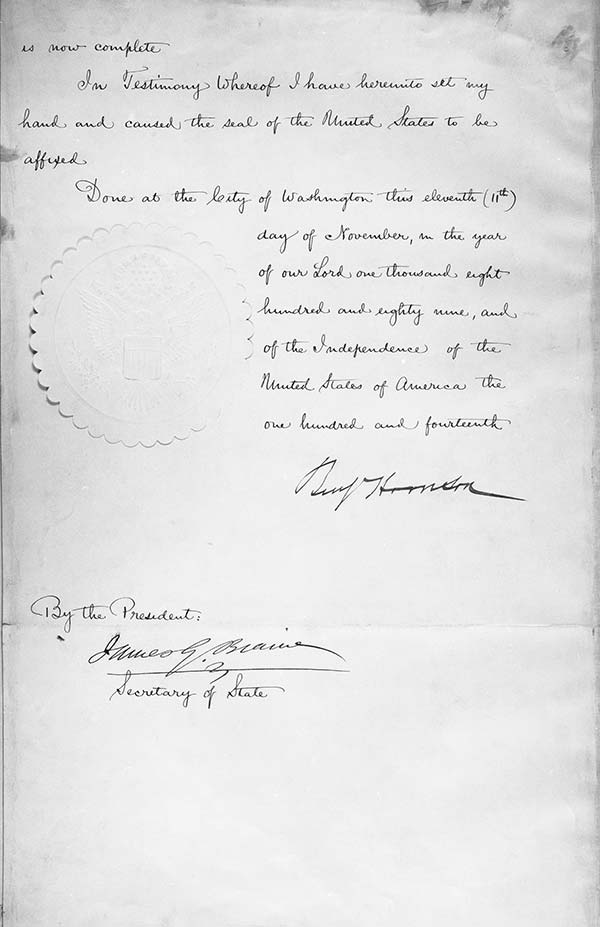 is now complete
In Testimony Whereof I have hereunto set my
hand and caused the seal of the United States to be
affixed
Done at the City of Washington this eleventh (11th)
day of November, in the year
of our Lord one thousand eight
hundred and eighty nine, and
of the Independence of the
United States of America the
one hundred and fourteenth
Benj Harrison
By the President:
James G. Blaine
Secretary of State